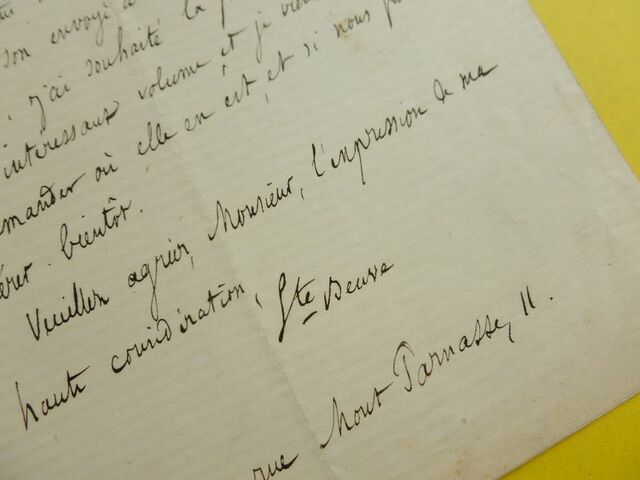 son envoyé à
j'ai souhaité la
intéressant volume, et je viens
demander où elle en est, et si nous
bientôt.
Veuillez agréer, Monsieur, l'expression de ma
haute considération,
Ste Beuve
rue Mont Parnasse, 11.